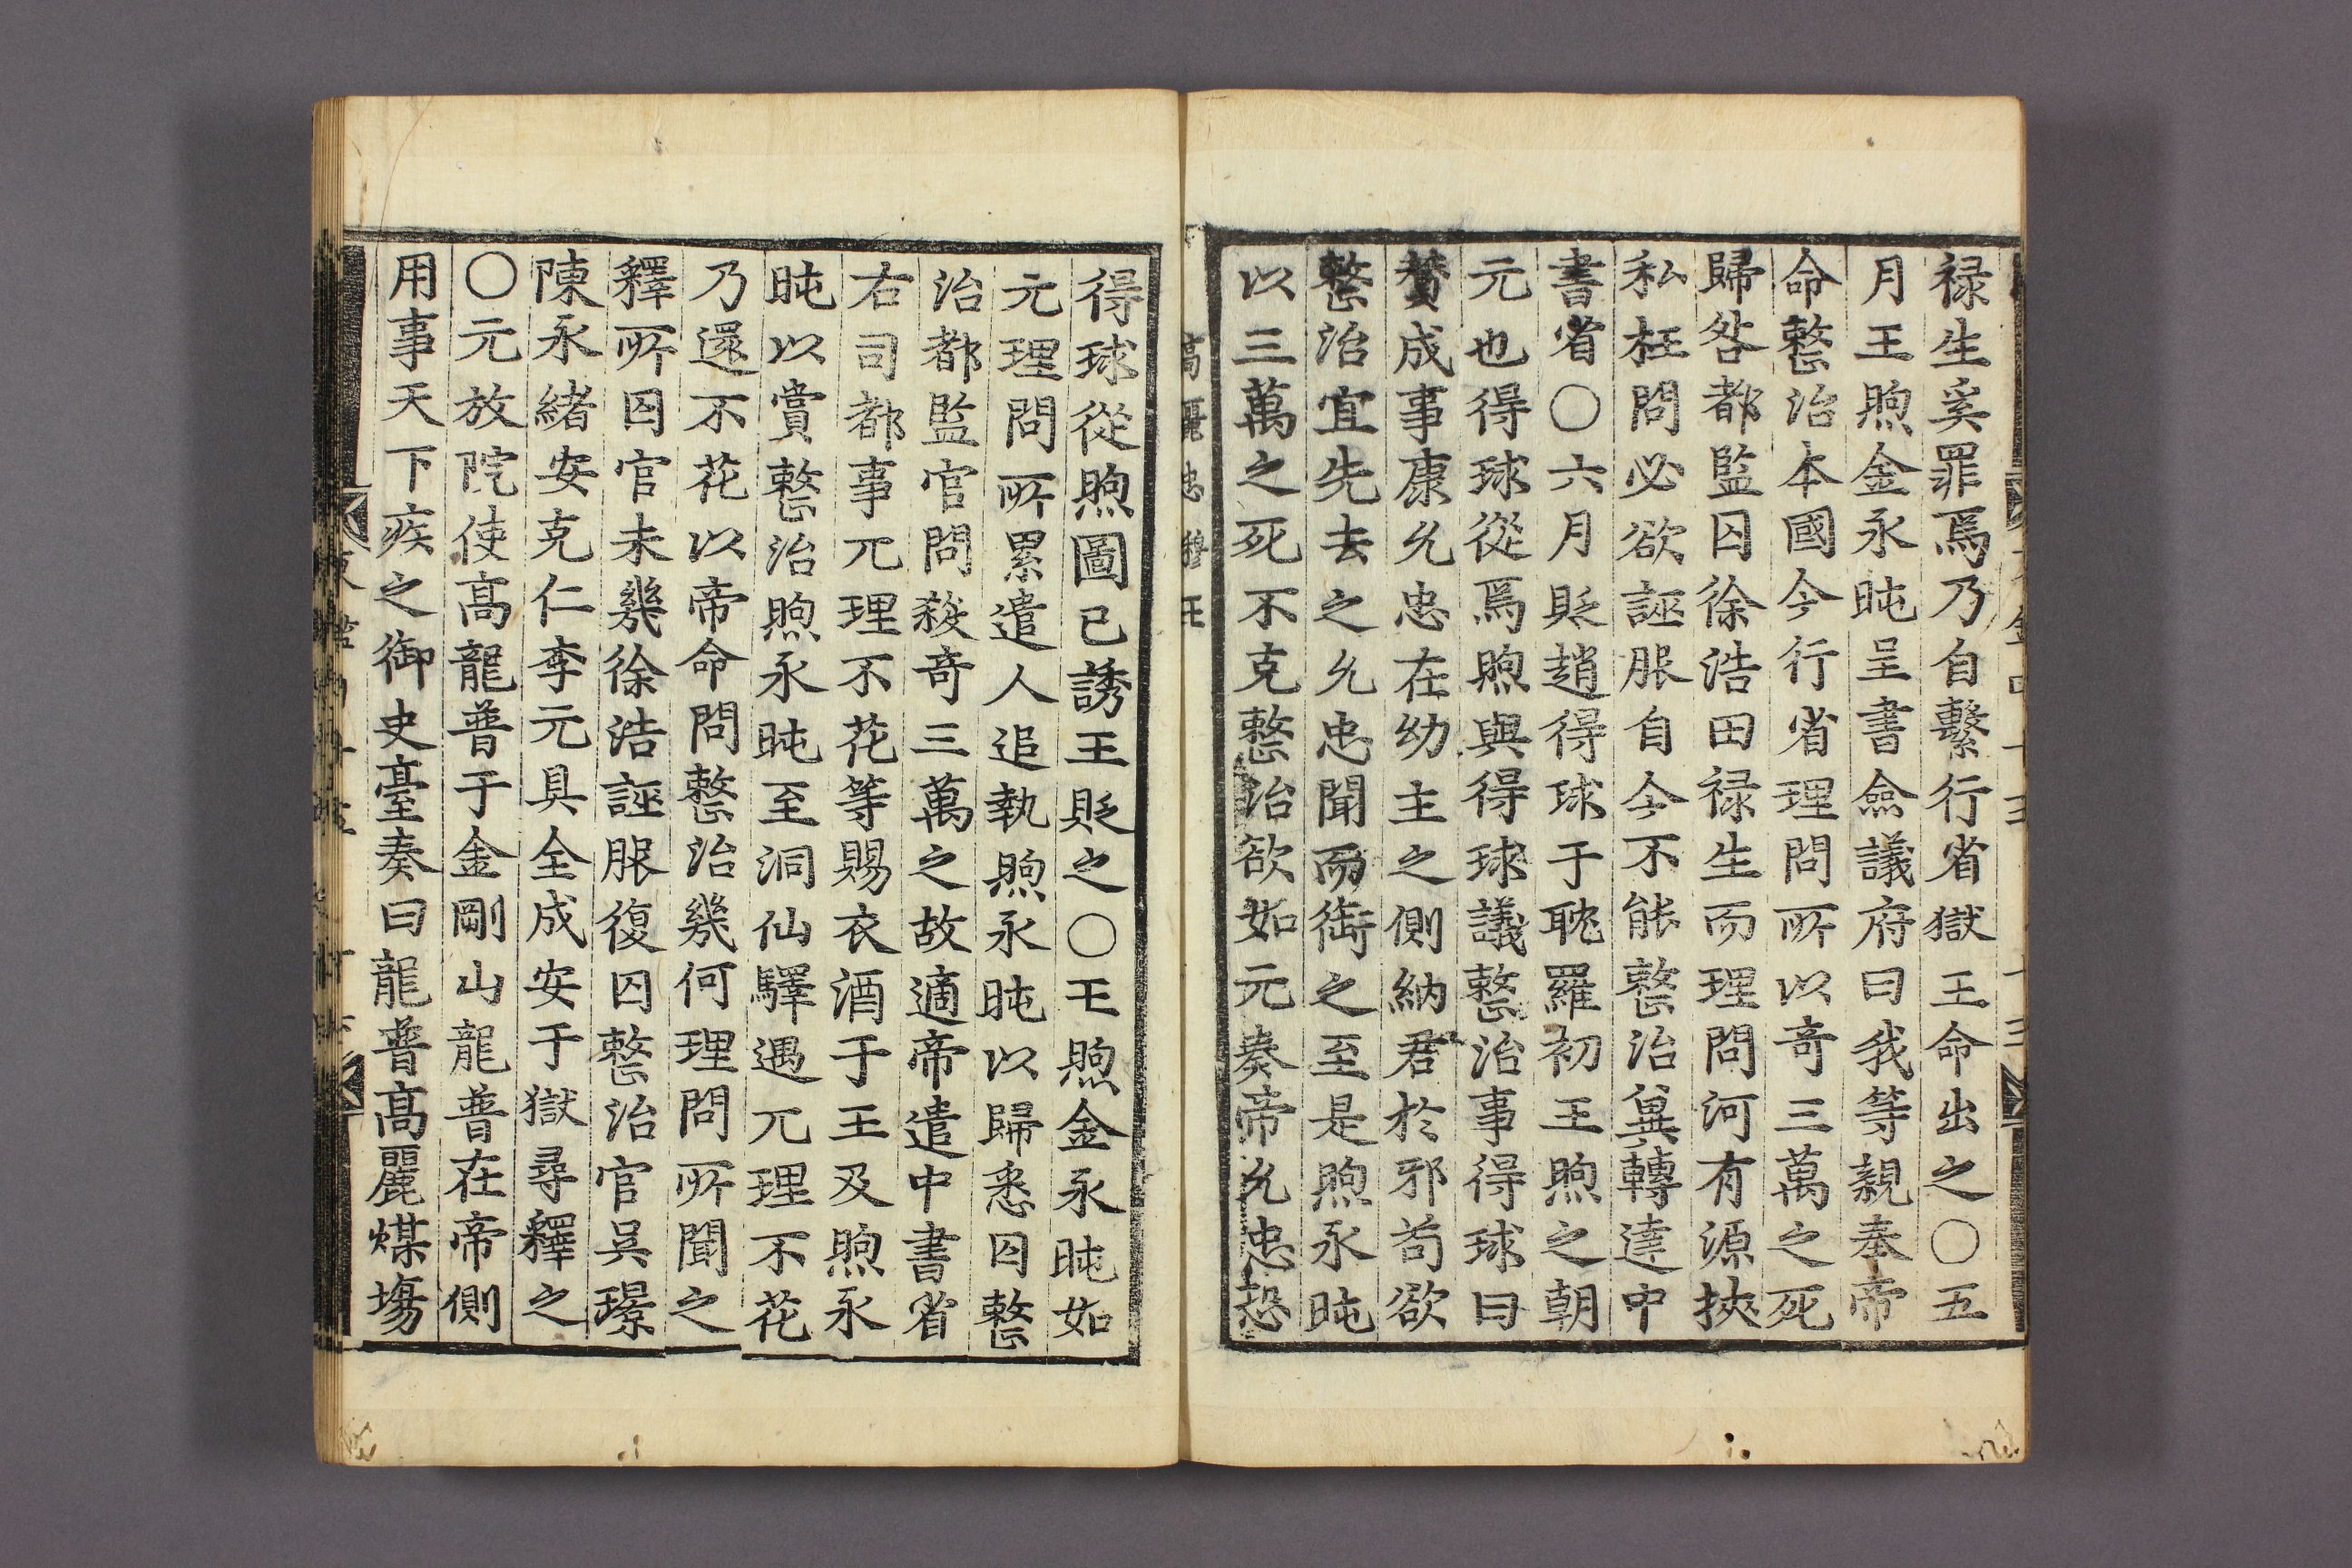 祿生奚罪焉乃自繫行省獄王命出之○五
月王煦金永旽呈書僉議府曰我等親奉帝
命整治本國今行省理問所以奇三萬之死
歸咎都監囚徐浩田祿生而理問河有源挾
私枉問必欲誣服自今不能整治兾轉達中
書省○六月貶趙得球于耽羅初王煦之朝
元也得球從焉煦與得球議整治事得球曰
賛成事康允忠在幼主之側納君於邪苟欲
整治宜先去之允忠聞而銜之至是煦永旽
以三萬之死不克整治欲如元奏帝允忠恐
高麗忠穆王
得球從煦圖已誘王貶之○王煦金永旽如
元理問所累遣人追執煦永旽以歸悉囚整
治都監官問殺奇三萬之故適帝遣中書省
右司都事兀理不花等賜衣酒于王及煦永
旽以賞整治煦永旽至洞仙驛遇兀理不花
乃還不花以帝命問整治幾何理問所聞之
釋所囚官未幾徐浩誣服復囚整治官吳璟
陳永緒安克仁李元具全成安于獄尋釋之
○元放院使高龍普于金剛山龍普在帝側
用事天下疾之御史臺奏曰龍普高麗煤塲